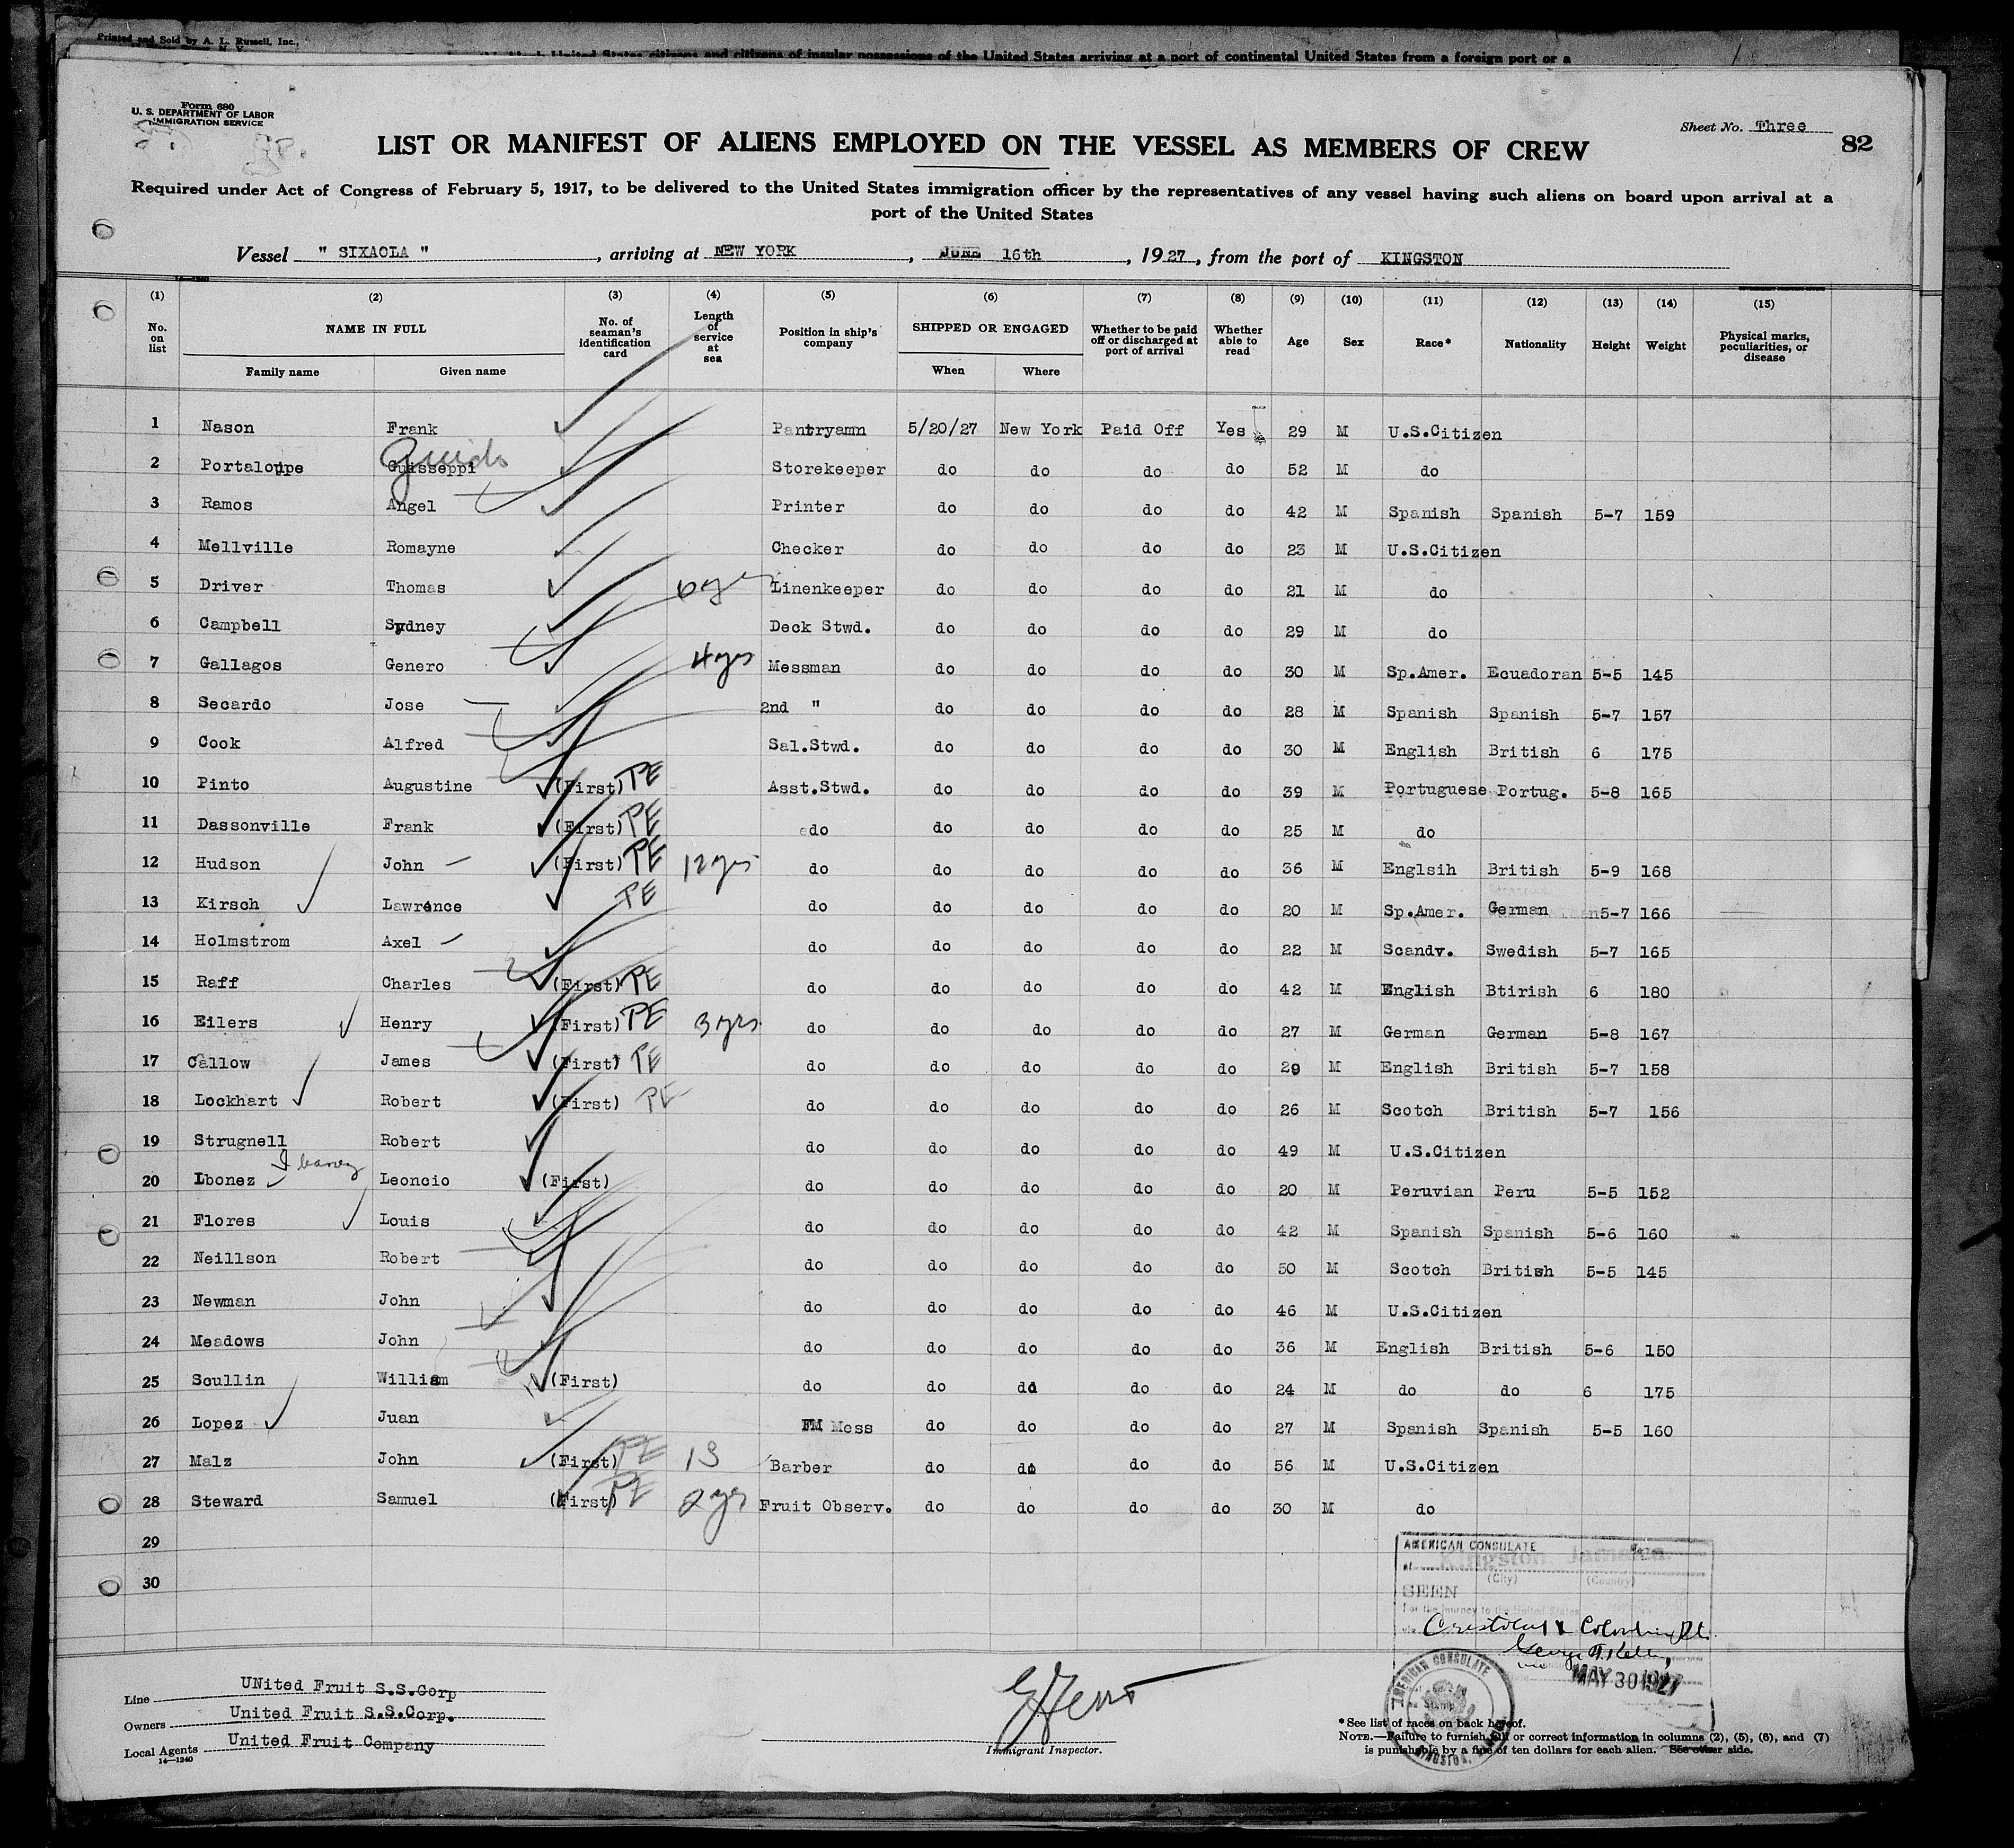 Printed and Sold by A. L. Russell, Inc.,
United States citizens and citizens of insular possessions of the United States arriving at a port of continental United States from a foreign port or a
Form 680
U. S. DEPARTMENT OF LABOR
IMMIGRATION SERVICE
Sheet No. Three
82
LIST OR MANIFEST OF ALIENS EMPLOYED ON THE VESSEL AS MEMBERS OF CREW
Required under Act of Congress of February 5, 1917, to be delivered to the United States immigration officer by the representatives of any vessel having such aliens on board upon arrival at a
port of the United States
Vessel " SIXAOLA ", arriving at NEW YORK, JUNE 16th, 1927, from the port of KINGSTON
(1) (2) (3) (4) (5) (6) (7) (8) (9) (10) (11) (12) (13) (14) (15)
No. on list NAME IN FULL Family name Given name No. of seaman's identification card Length of service at sea Position in ship's company SHIPPED OR ENGAGED When Where Whether to be paid off or discharged at port of arrival Whether able to read Age Sex Race* Nationality Height Weight Physical marks, peculiarities, or disease
1 Nason Frank Pantryamn 5/20/27 New York Paid Off Yes 29 M U.S.Citizen
Guido
2 Portaloupe Guisseppi Storekeeper do do do do 52 M do
3 Ramos Angel Printer do do do do 42 M Spanish Spanish 5-7 159
4 Mellville Romayne Checker do do do do 23 M U.S.Citizen
5 Driver Thomas 6 yr Linenkeeper do do do do 21 M do
6 Campbell Sydney Deck Stwd. do do do do 29 M do
7 Gallagos Genero 4 yrs Messman do do do do 30 M Sp.Amer. Ecuadoran 5-5 145
8 Secardo Jose 2nd " do do do do 28 M Spanish Spanish 5-7 157
9 Cook Alfred Sal.Stwd. do do do do 30 M English British 6 175
10 Pinto Augustine (First) PE Asst.Stwd. do do do do 39 M Portuguese Portug. 5-8 165
11 Dassonville Frank (First) PE do do do do do 25 M do
12 Hudson John (First) PE 12 yrs do do do do do 36 M Englsih British 5-9 168
13 Kirsch Lawrence PE do do do do do 20 M Sp.Amer. German 5-7 166
14 Holmstrom Axel do do do do do 22 M Scandv. Swedish 5-7 165
15 Raff Charles (First) PE do do do do do 42 M English Btirish 6 180
16 Eilers Henry (First) PE 3 yrs do do do do do 27 M German German 5-8 167
17 Callow James (First) PE do do do do do 29 M English British 5-7 158
18 Lockhart Robert (First) PE do do do do do 26 M Scotch British 5-7 156
19 Strugnell Robert do do do do do 49 M U.S.Citizen
20 Lbonez Leoncio (First) do do do do do 20 M Peruvian Peru 5-5 152
21 Flores Louis do do do do do 42 M Spanish Spanish 5-6 160
22 Neillson Robert do do do do do 50 M Scotch British 5-5 145
23 Newman John do do do do do 46 M U.S.Citizen
24 Meadows John do do do do do 36 M English British 5-6 150
25 Scullin William (First) do do do do do 24 M do do 6 175
26 Lopez Juan FM Mess do do do do 27 M Spanish Spanish 5-5 160
27 Malz John (First) PE 13 Barber do do do do 56 M U.S.Citizen
28 Steward Samuel (First) PE 2 yrs Fruit Observ. do do do do 30 M do
29
30
AMERICAN CONSULATE
at Kingston, Jamaica.
(City) (Country)
SEEN
For the journey to the United States
via Cristobal & Colombian Pts.
MAY 30 1927
AMERICAN CONSULATE
KINGSTON, JAMAICA
Line UNited Fruit S.S.Corp
Owners United Fruit S.S.Corp.
Local Agents United Fruit Company
14—1240
Immigrant Inspector.
*See list of races on back hereof.
NOTE.—Failure to furnish full or correct information in columns (2), (5), (6), and (7)
is punishable by a fine of ten dollars for each alien. See other side.